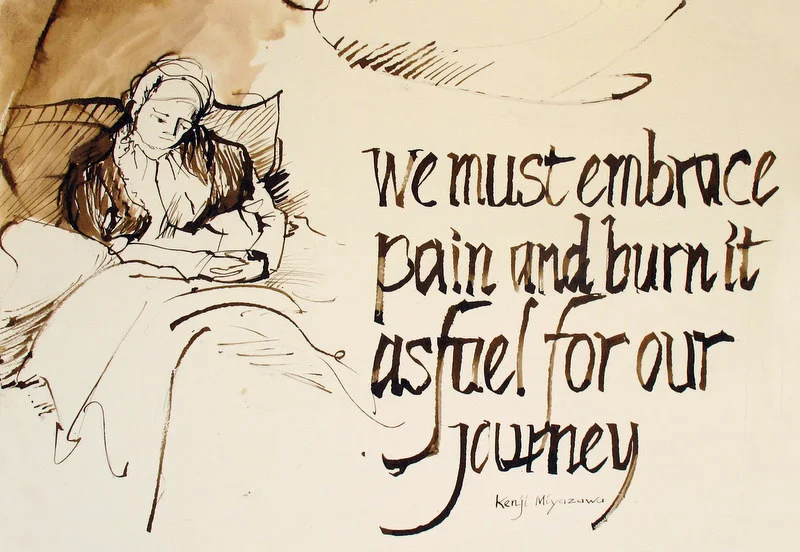 We must embrace
pain and burn it
as fuel for our
journey
Kenji Miyazawa